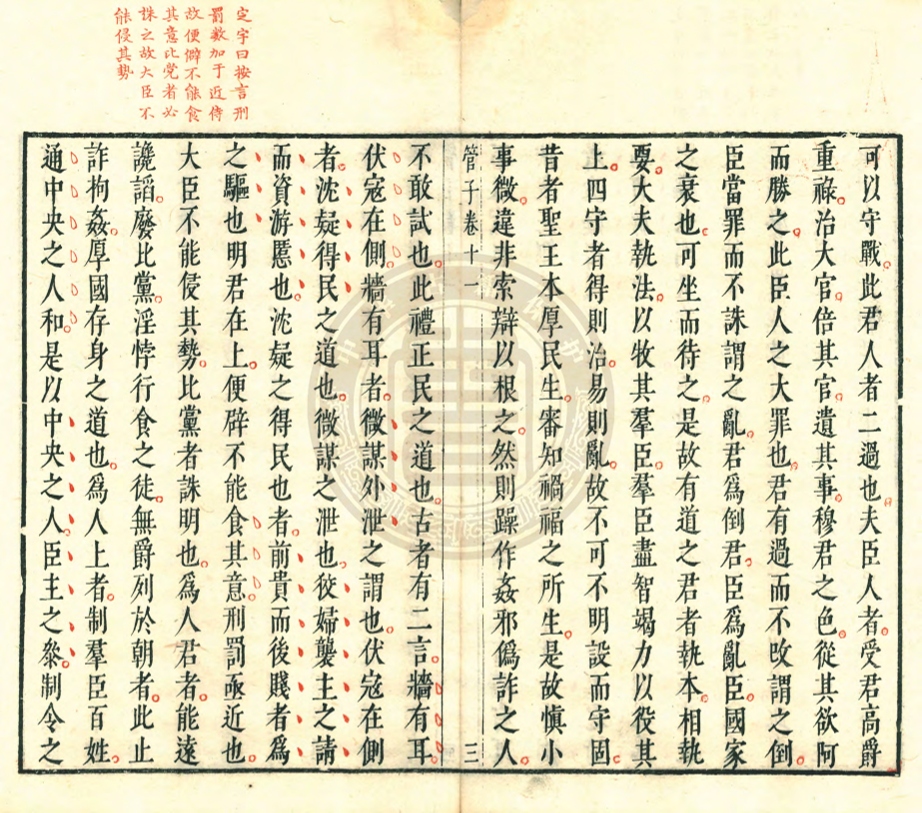 定宇曰按言刑
罰數加于近侍
故便僻不能食
其意比党者必
誅之故大臣不
能侵其勢
可以守戰此君人者二過也夫臣人者受君高爵
重祿治大官倍其官遺其事穆君之色從其欲阿
而勝之此臣人之大罪也君有過而不改謂之倒
臣當罪而不誅謂之亂君爲倒君臣爲亂臣國家
之衰也可坐而待之是故有道之君者執本相執
要大夫執法以牧其羣臣羣臣盡智竭力以役其
上四守者得則治易則亂故不可不明設而守固
昔者聖王本厚民生審知禍福之所生是故愼小
事微違非索辯以根之然則躁作姦邪僞詐之人
管子卷十一 三
不敢試也此禮正民之道也古者有二言牆有耳
伏寇在側牆有耳者微謀外泄之謂也伏寇在側
者沈疑得民之道也微謀之泄也狡婦襲主之請
而資游慝也沈疑之得民也者前貴而後賤者爲
之驅也明君在上便辟不能食其意刑罰亟近也
大臣不能侵其勢比黨者誅明也爲人君者能遠
讒諂廢比黨淫悖行食之徒無爵列於朝者此止
詐拘姦厚國存身之道也爲人上者制羣臣百姓
通中央之人和是以中央之人臣主之叅制令之